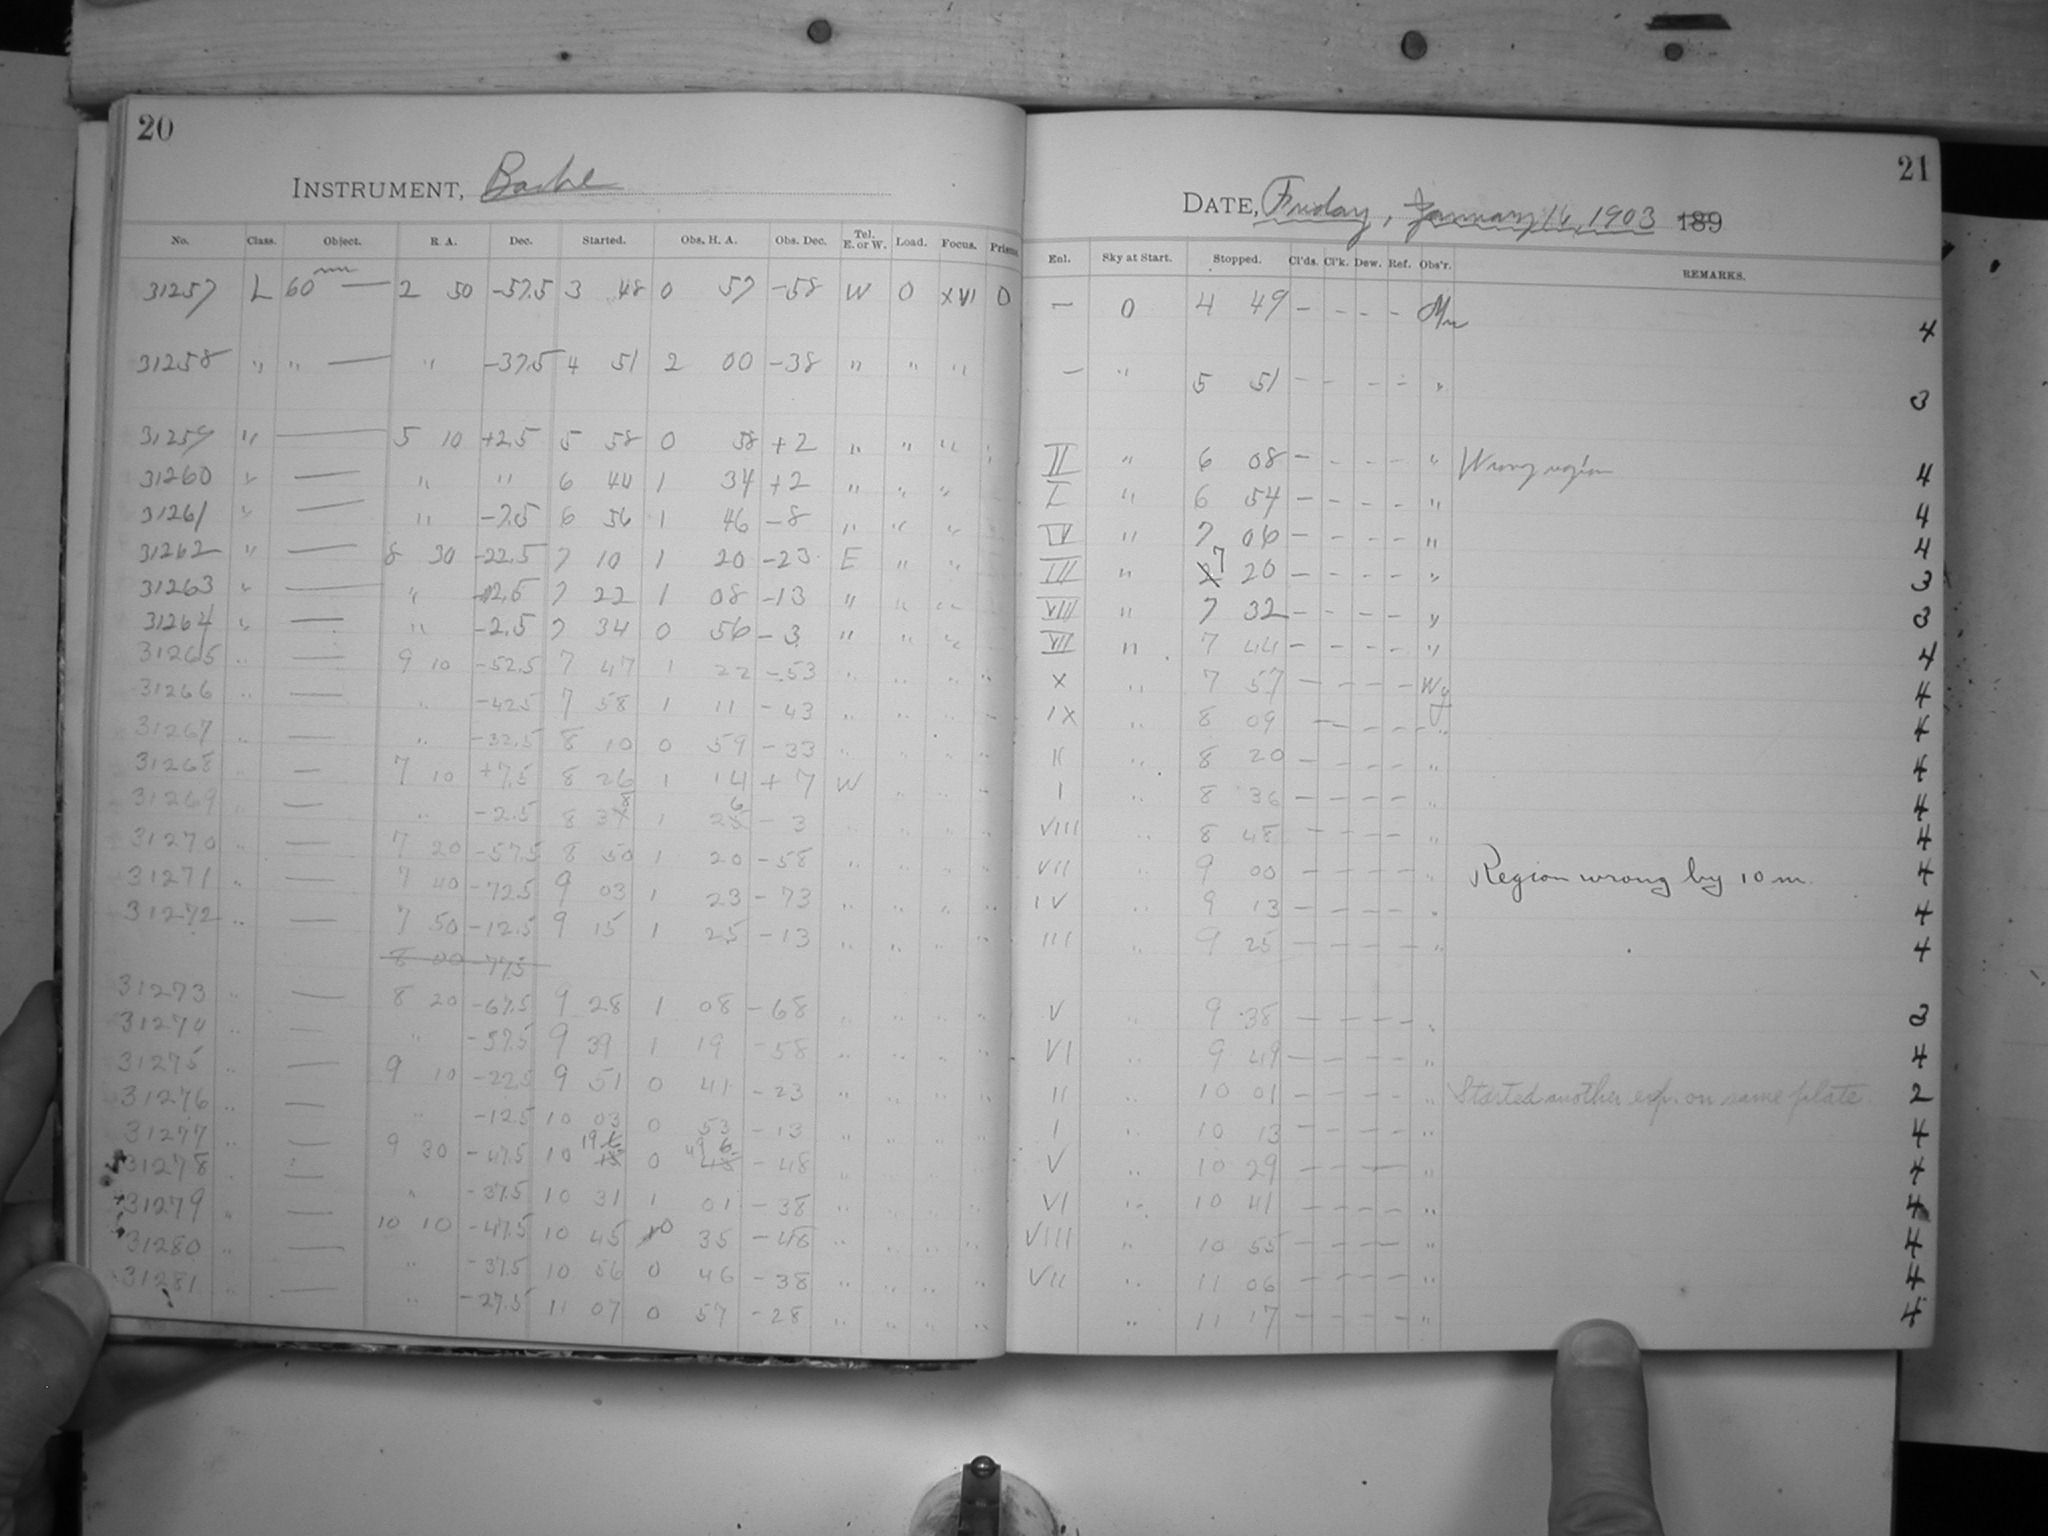 20
INSTRUMENT, Bache
No. Class. Object. R. A. Dec. Started. Obs. H. A. Obs. Dec. Tel. E. or W. Load. Focus. Prisms
31257 L 60m — 2 50 -57.5 3 48 0 57 -58 W 0 XVI 0
31258 " " — " -37.5 4 51 2 00 -38 " " "
31259 " — 5 10 +2.5 5 58 0 58 +2 " " "
31260 " — " " 6 44 1 34 +2 " " "
31261 " — " -7.5 6 56 1 46 -8 " " "
31262 " — 8 30 -22.5 7 10 1 20 -23 E " "
31263 " — " -12.5 7 22 1 08 -13 " " "
31264 " — " -2.5 7 34 0 56 -3 " " "
31265 " — 9 10 -52.5 7 47 1 22 -53 " " " "
31266 " — " -42.5 7 58 1 11 -43 " " " "
31267 " — " -32.5 8 10 0 59 -33 " " " "
31268 " — 7 10 +7.5 8 26 1 14 +7 W " " "
31269 " — " -2.5 8 38 1 26 -3 " " " "
31270 " — 7 20 -57.5 8 50 1 20 -58 " " " "
31271 " — 7 40 -72.5 9 03 1 23 -73 " " " "
31272 " — 7 50 -12.5 9 15 1 25 -13 " " " "
8 00 -77.5
31273 " — 8 20 -67.5 9 28 1 08 -68 " " " "
31274 " — " -57.5 9 39 1 19 -58 " " " "
31275 " — 9 10 -22.5 9 51 0 41 -23 " " " "
31276 " — " -12.5 10 03 0 53 -13 " " " "
31277 " — 9 30 -47.5 10 19 0 49 -48 " " " "
31278 " — " -37.5 10 31 1 01 -38 " " " "
31279 " — 10 10 -47.5 10 45 0 35 -48 " " " "
31280 " — " -37.5 10 56 0 46 -38 " " " "
31281 " — " -27.5 11 07 0 57 -28 " " " "
21
DATE, Friday, January 16, 1903 189
Enl. Sky at Start. Stopped. Cl'ds. Cl'k. Dew. Ref. Obs'r. REMARKS.
— 0 4 49 - - - - 4
— " 5 51 - - - - " 3
II " 6 08 - - - - " Wrong region 4
I " 6 54 - - - - " 4
IV " 7 06 - - - - " 4
III " 7 20 - - - - " 3
VIII " 7 32 - - - - " 3
VII " 7 44 - - - - " 4
X " 7 57 - - - - Wy 4
IX " 8 09 - - - - " 4
II " 8 20 - - - - " 4
I " 8 36 - - - - " 4
VIII " 8 48 - - - - " 4
VII " 9 00 - - - - " Region wrong by 10 m. 4
IV " 9 13 - - - - " 4
III " 9 25 - - - - " 4
V " 9 38 - - - - " 3
VI " 9 49 - - - - " 4
II " 10 01 - - - - " Started another exp. on same plate. 2
I " 10 13 - - - - " 4
V " 10 29 - - - - " 4
VI " 10 41 - - - - " 4
VIII " 10 55 - - - - " 4
VII " 11 06 - - - - " 4
" 11 17 - - - - " 4